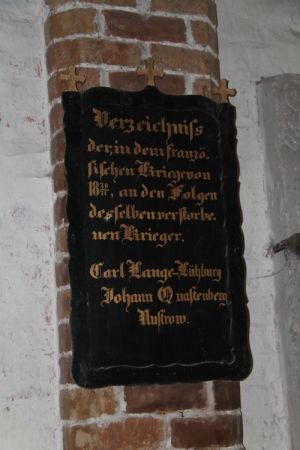 Verzeichniss
der, in dem franzö-
sischen Kriege von
18 70/71, an den Folgen
desselben verstorbe-
nen Krieger.
Carl Lange-Lühburg
Johann Quastenberg
Nustrow.